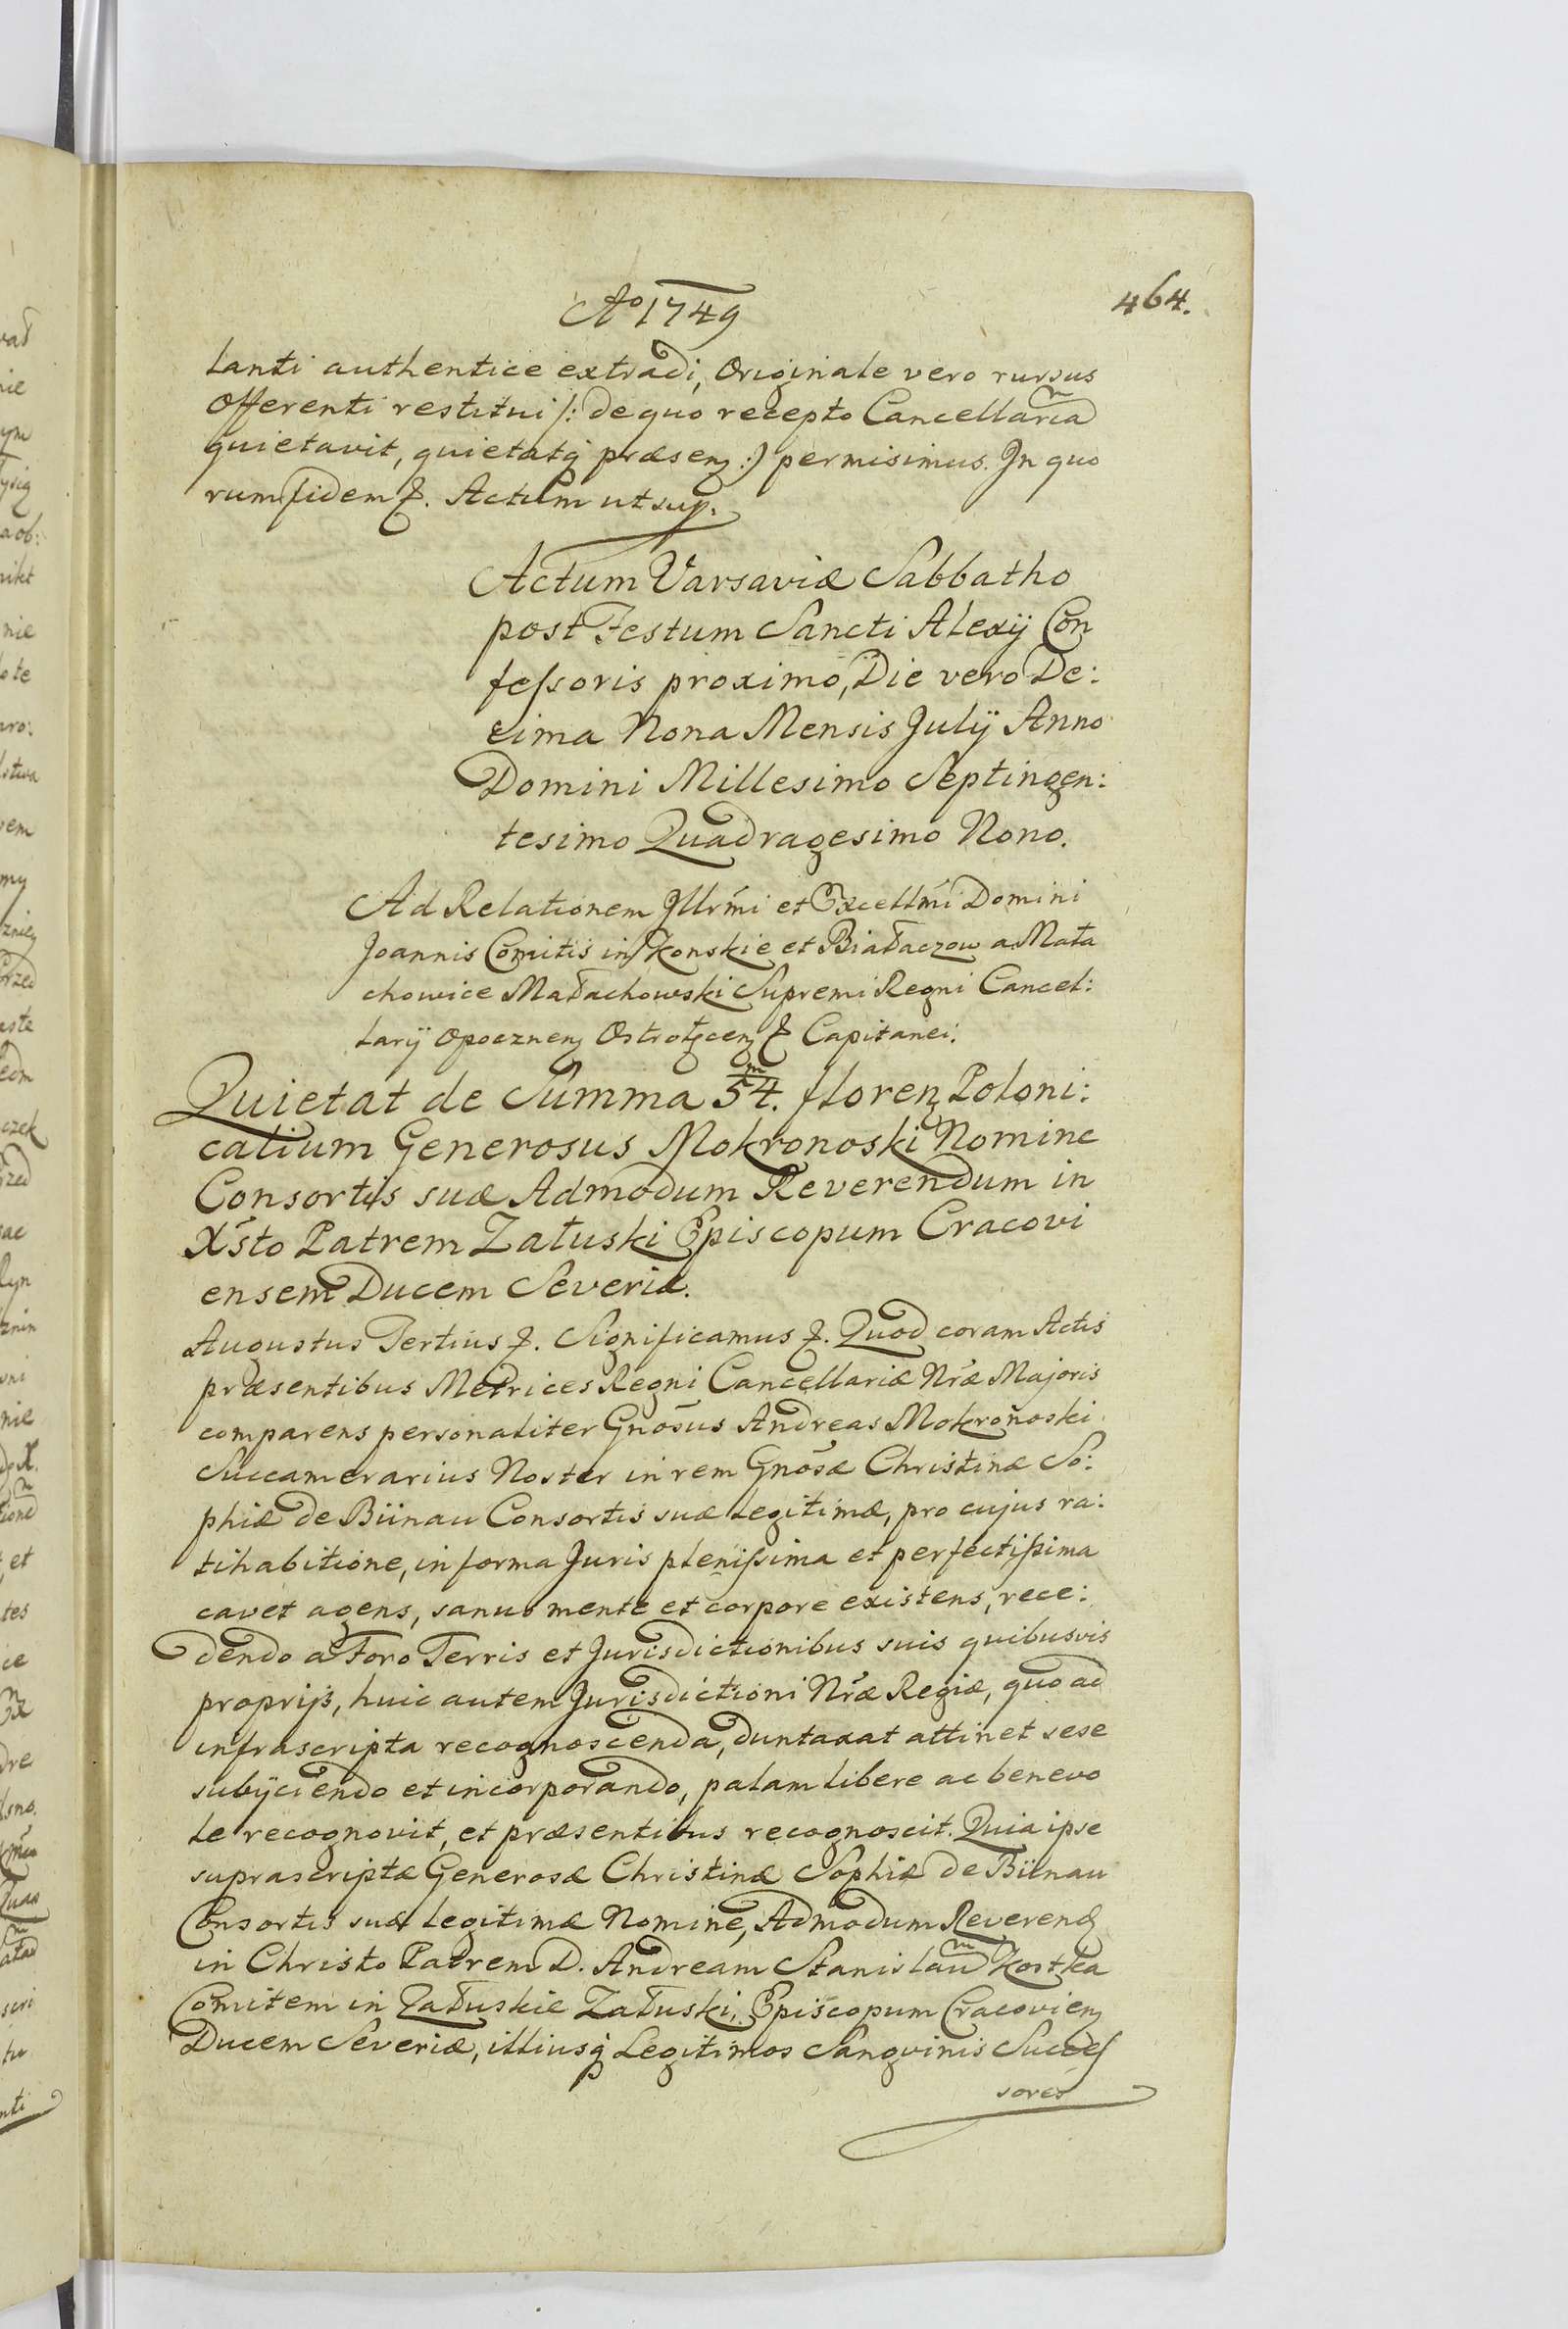 Ao 1749
464.
lanti authentice extradi, Originale vero rursus
Offerenti restitui /: de quo recepto Cancellaria
quietavit, quietatq praesenz :/ permisimus. In quo
rum fidem &. Actum ut sup.
Actum Varsaviæ Sabbatho
post Festum Sancti Alexÿ Con
feſsoris proximo, Die vero De:
cima Nona Mensis Julÿ Anno
Domini Millesimo Septingen:
tesimo Quadragesimo Nono.
Ad Relationem Illrmi et Excellmi Domini
Joannis Comitis in Konskie et Białaczow a Mała
chowice Małachowski Supremi Regni Cancel:
larÿ Opocznenz Ostrołęcenz & Capitanei.
Quietat de Summa 54.m florenz Poloni:
calium Generosus Mokronoski Nomine
Consortis suæ Admodum Reverendum in
Xsto Patrem Załuski Episcopum Cracovi
ensem Ducem Severiæ.
Augustus Tertius &. Significamus &. Quod coram Actis
præsentibus Metrices Regni Cancellariæ Nræ Majoris
comparens personaliter Gnosus Andreas Mokronoski
Succamerarius Noster in rem Gnosæ Christinæ So:
phiæ de Bünau Consortis suæ legitimæ, pro cujus ra:
tihabitione, in forma Juris pleniſsima et perfectiſsima
cavet agens, sanus mente et corpore existens, rece:
dendo a Foro Terris et Jurisdictionibus suis quibusvis
proprijs, huic autem Jurisdictioni Nræ Regiæ, quo ad
infrascripta recognoscenda, duntaxat attinet sese
subÿciendo et incorporando, palam libere ac benevo
le recognovit, et præsentibus recognoscit. Quia ipse
suprascriptæ Generosæ Christinæ Sophiæ de Bünau
Consortis suæ legitimæ Nomine, Admodum Reverend
in Christo Patrem D. Andream Stanislaum Kostka
Comitem in Załuskie Załuski, Episcopum Cracovienz
Ducem Severiæ, illiusq Legitimos Sangvinis Succeſ
sores